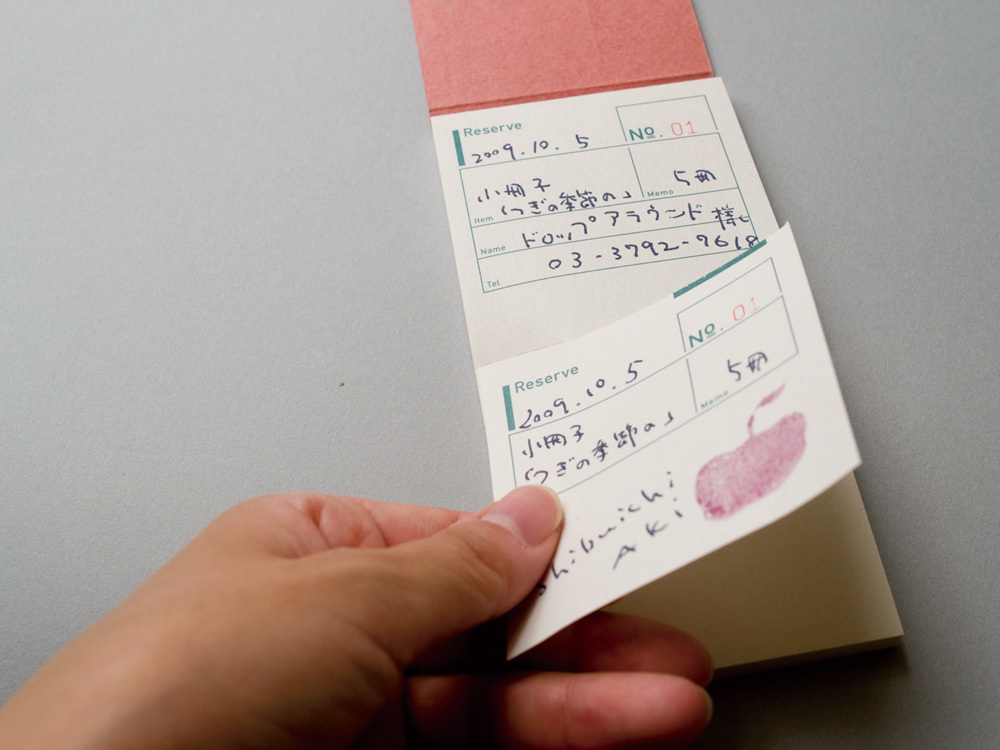 Reserve
No. 01
2009.10.5
小冊子
「つぎの季節の」
Item
Memo
5冊
Name
ドロップアラウンド 様
Tel
03-3792-7618
Reserve
No. 01
2009.10.5
小冊子
「つぎの季節の」
Memo
5冊
Aki